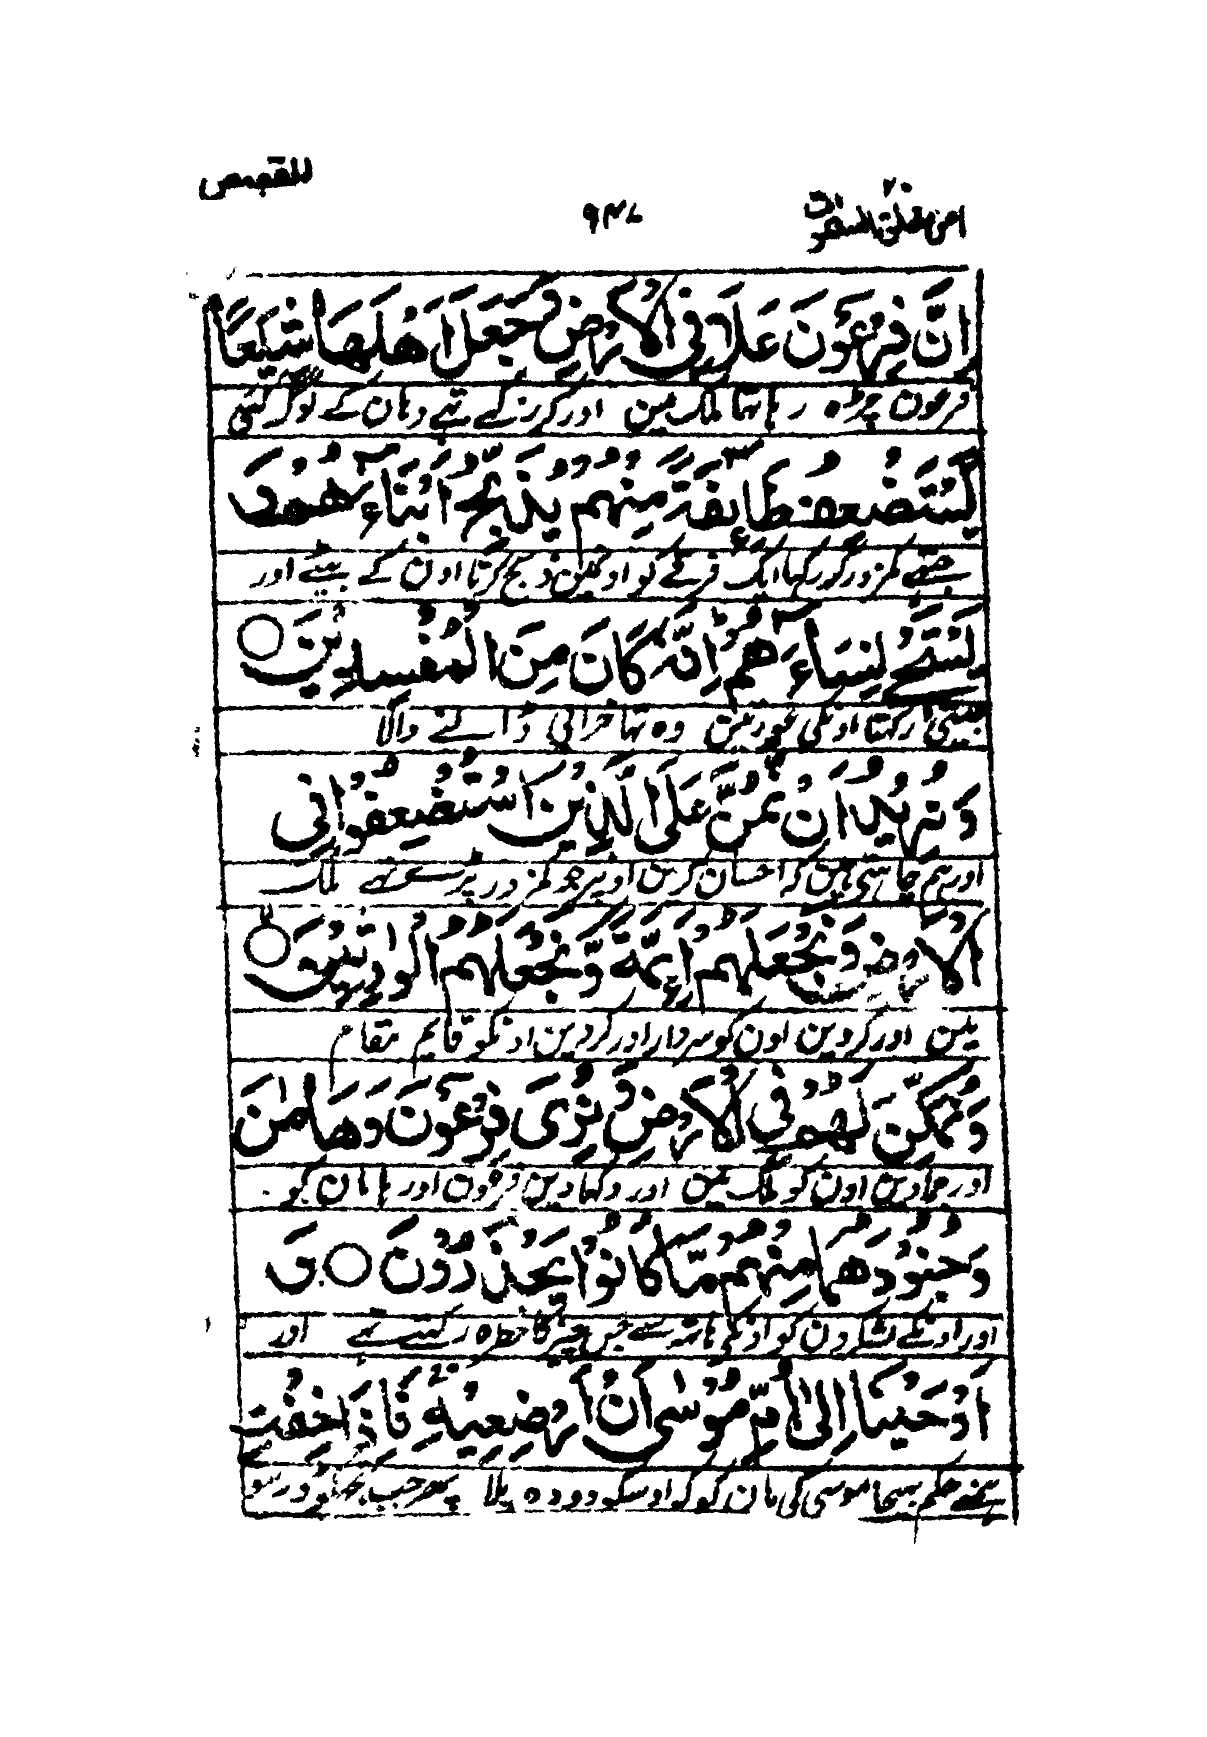 القصص
امن خلق السموات ٢٠
٩٣٨
اِنَّ فِرْعَوْنَ عَلَا فِي الْاَرْضِ وَجَعَلَ اَهْلَهَا شِيَعًا
فرعون چڑہ رہا تہا ملک مین اور کر رکہے تہے وہان کے لوگ کئی
يَّسْتَضْعِفُ طَآئِفَةً مِّنْهُمْ يُذَبِّحُ اَبْنَآءَهُمْ وَ
جتھے کمزور کر رکہا ایک فرقے کو اونمین ذبح کرتا اون کے بیٹے اور
يَسْتَحْيٖ نِسَآءَهُمْ اِنَّهٗ كَانَ مِنَ الْمُفْسِدِيْنَ ○
جیتی رکہتا اونکی عورتین وہ تہا خرابی ڈالنے والا
وَنُرِيْدُ اَنْ نَّمُنَّ عَلَى الَّذِيْنَ اسْتُضْعِفُوْا فِي
اور ہم چاہتے ہین کہ احسان کرین اونپر جو کمزور پڑے تہے ملک
الْاَرْضِ وَنَجْعَلَهُمْ اَئِمَّةً وَّنَجْعَلَهُمُ الْوٰرِثِيْنَ ○
مین اور کردین اون کو سردار اور کردین اونکو قایم مقام
وَنُمَكِّنَ لَهُمْ فِي الْاَرْضِ وَنُرِيَ فِرْعَوْنَ وَهَامٰنَ
اور جمادین اون کو ملک مین اور دکہادین فرعون اور ہامان کو
وَجُنُوْدَهُمَا مِنْهُمْ مَّا كَانُوْا يَحْذَرُوْنَ ○ وَ
اور اونکے لشکرون کو اونکے ہاتہ سے جس چیز کا خطرہ رکہتے تہے اور
اَوْحَيْنَا اِلٰى اُمِّ مُوْسٰى اَنْ اَرْضِعِيْهِ فَاِذَا خِفْتِ
ہمنے حکم بہیجا موسی کی مان کو کہ اوسکو دودہ پلا پہر جب تجہکو ڈر ہو